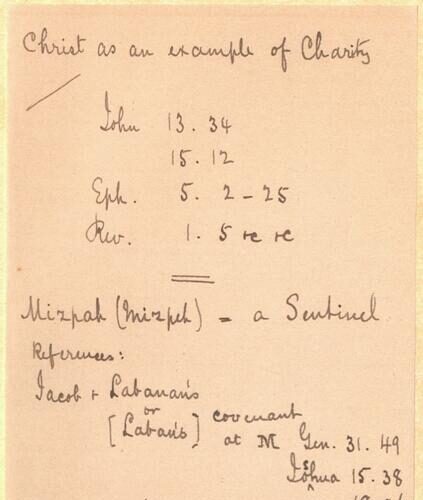 Christ as an example of Charity
John 13. 34
15. 12
Eph. 5. 2 - 25
Rev. 1. 5 &c &c
Mizpah (Mizpeh) = a Sentinel
References:
Jacob + Labanan's
or
[Laban's] covenant
at M Gen. 31. 49
Joshua 15. 38